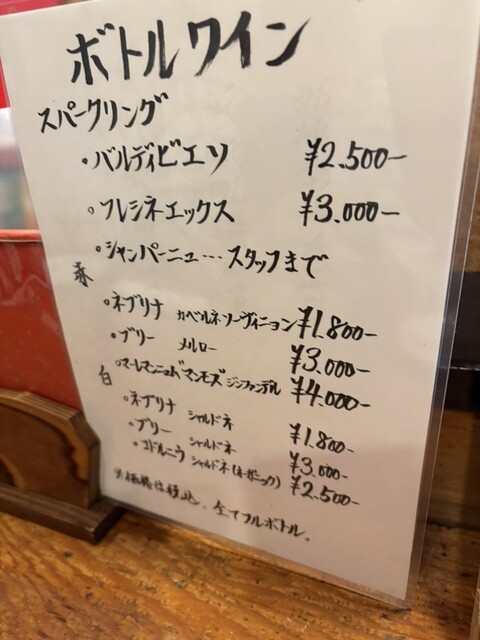 ボトルワイン
スパークリング
・バルディビエソ ¥2.500-
・フレシネエックス ¥3.000-
・シャンパーニュ…スタッフまで
赤
・ネブリナ カベルネソーヴィニョン ¥1.800-
・ブリー メルロー ¥3.000-
・マーレマンニュムマンモズジンファンデル ¥4.000-
白
・ネブリナ シャルドネ ¥1.800-
・ブリー シャルドネ ¥3.000-
・コドルニウ シャルドネ(オーガニック) ¥2.500-
※価格は税込。全てフルボトル。